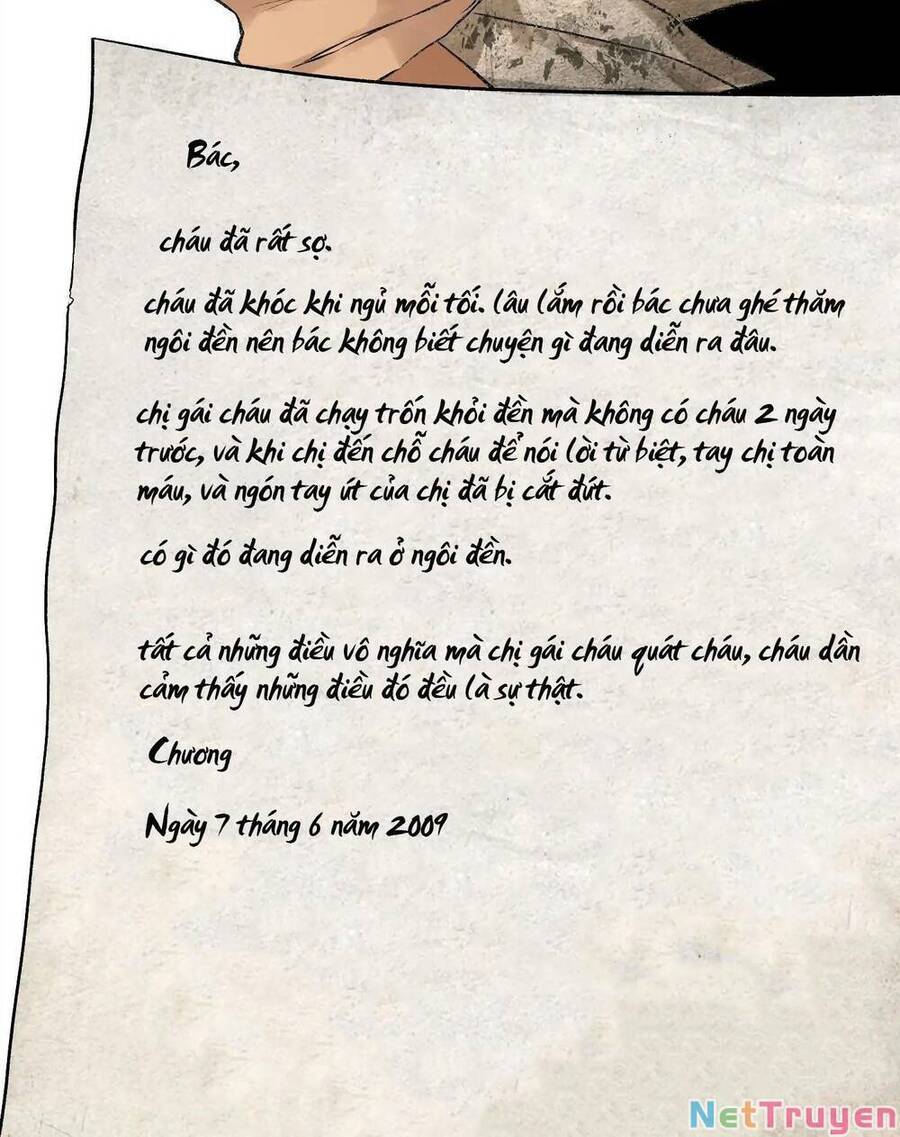 Bác,
cháu đã rất sợ.
cháu đã khóc khi ngủ mỗi tối. lâu lắm rồi bác chưa ghé thăm
ngôi đền nên bác không biết chuyện gì đang diễn ra đâu.
chị gái cháu đã chạy trốn khỏi đền mà không có cháu 2 ngày
trước, và khi chị đến chỗ cháu để nói lời từ biệt, tay chị toàn
máu, và ngón tay út của chị đã bị cắt đứt.
có gì đó đang diễn ra ở ngôi đền.
tất cả những điều vô nghĩa mà chị gái cháu quát cháu, cháu dần
cảm thấy những điều đó đều là sự thật.
Chương
Ngày 7 tháng 6 năm 2009
NetTruyen